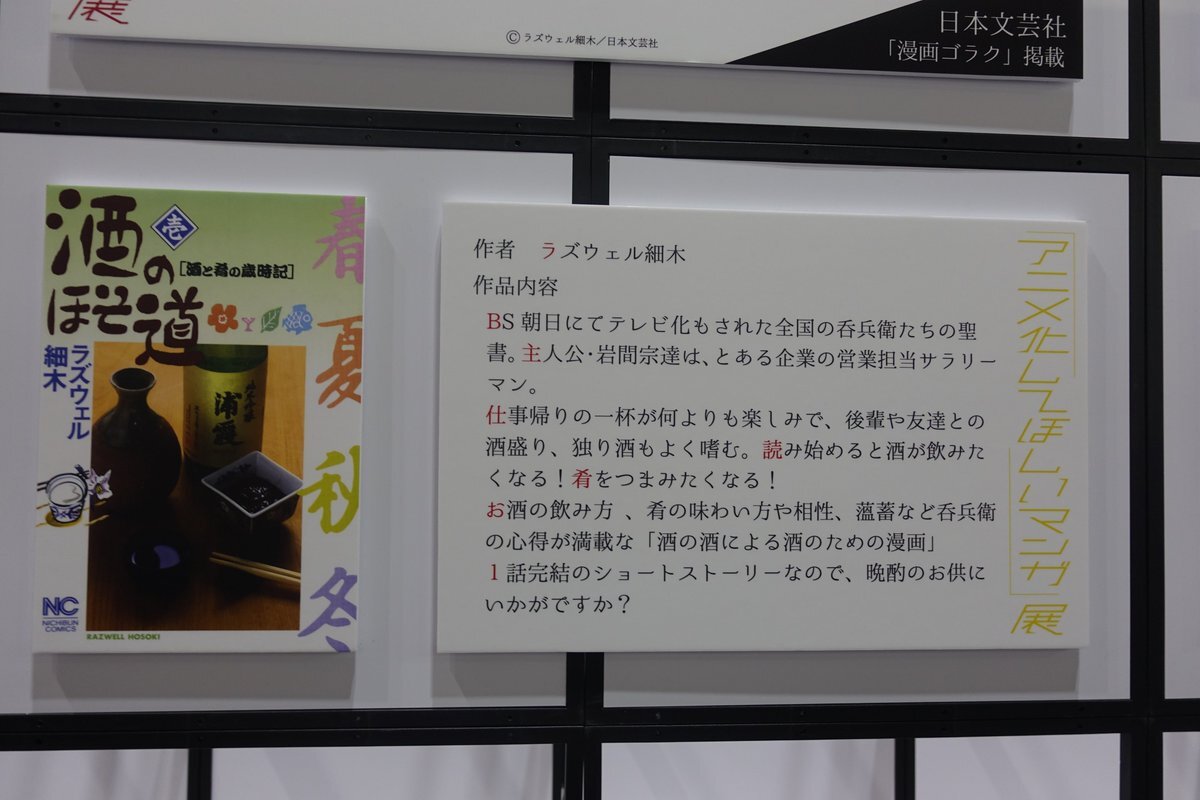 展
©ラズウェル細木／日本文芸社
日本文芸社
「漫画ゴラク」掲載
酒の
ほそ道
壱
[酒と肴の歳時記]
ラズウェル
細木
春
夏
秋
冬
浦霞
NC
NICHIBUN
COMICS
RAZWELL HOSOKI
作者　ラズウェル細木
作品内容
BS朝日にてテレビ化もされた全国の呑兵衛たちの聖
書。主人公・岩間宗達は、とある企業の営業担当サラリー
マン。
仕事帰りの一杯が何よりも楽しみで、後輩や友達との
酒盛り、独り酒もよく嗜む。読み始めると酒が飲みた
くなる！肴をつまみたくなる！
お酒の飲み方 、肴の味わい方や相性、薀蓄など呑兵衛
の心得が満載な「酒の酒による酒のための漫画」
1話完結のショートストーリーなので、晩酌のお供に
いかがですか？
「アニメ化してほしいマンガ」展